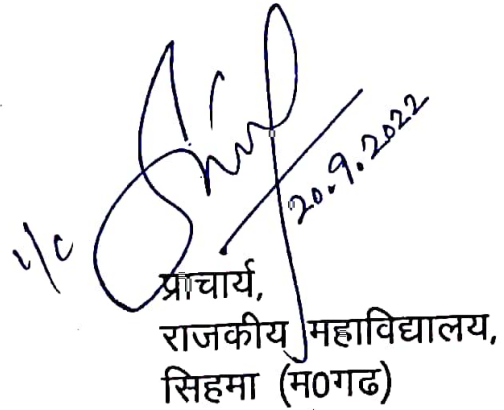 20.9.2022
i/c
प्राचार्य,
राजकीय महाविद्यालय,
सिहमा (म0गढ)